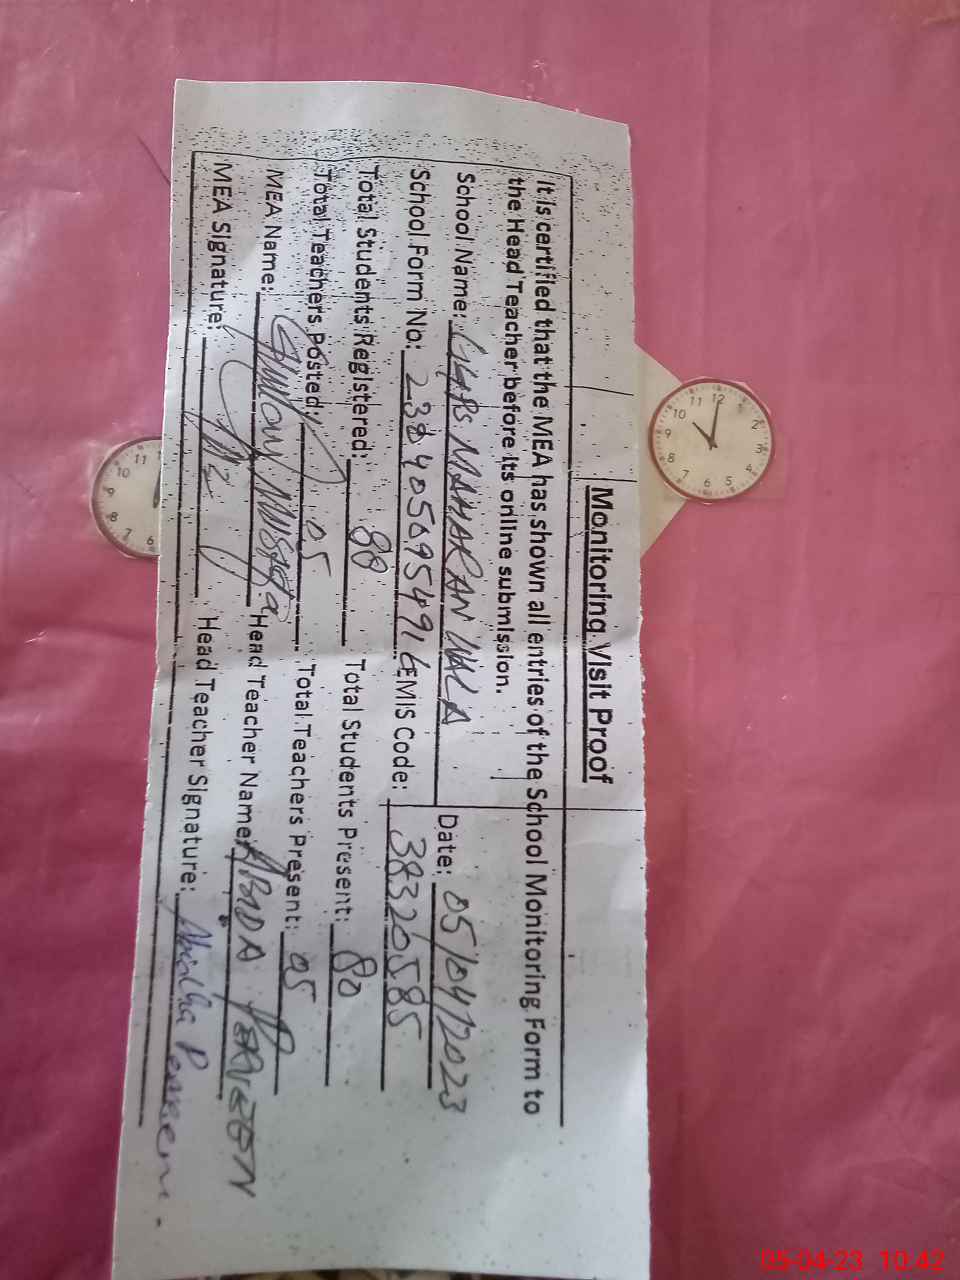 Monitoring Visit Proof
It is certified that the MEA has shown all entries of the School Monitoring Form to
the Head Teacher before its online submission.
School Name: GGPS MAHARAN WALA Date: 05/04/2023
School Form No: EMIS Code: 38320585
Total Students Registered: 80 Total Students Present: 80
Total Teachers Posted: 05 Total Teachers Present: 05
MEA Name: Ghulam Mustafa Head Teacher Name: ABIDA PERVEEN
MEA Signature: Head Teacher Signature: Abida Perveen
05-04-23 10:42